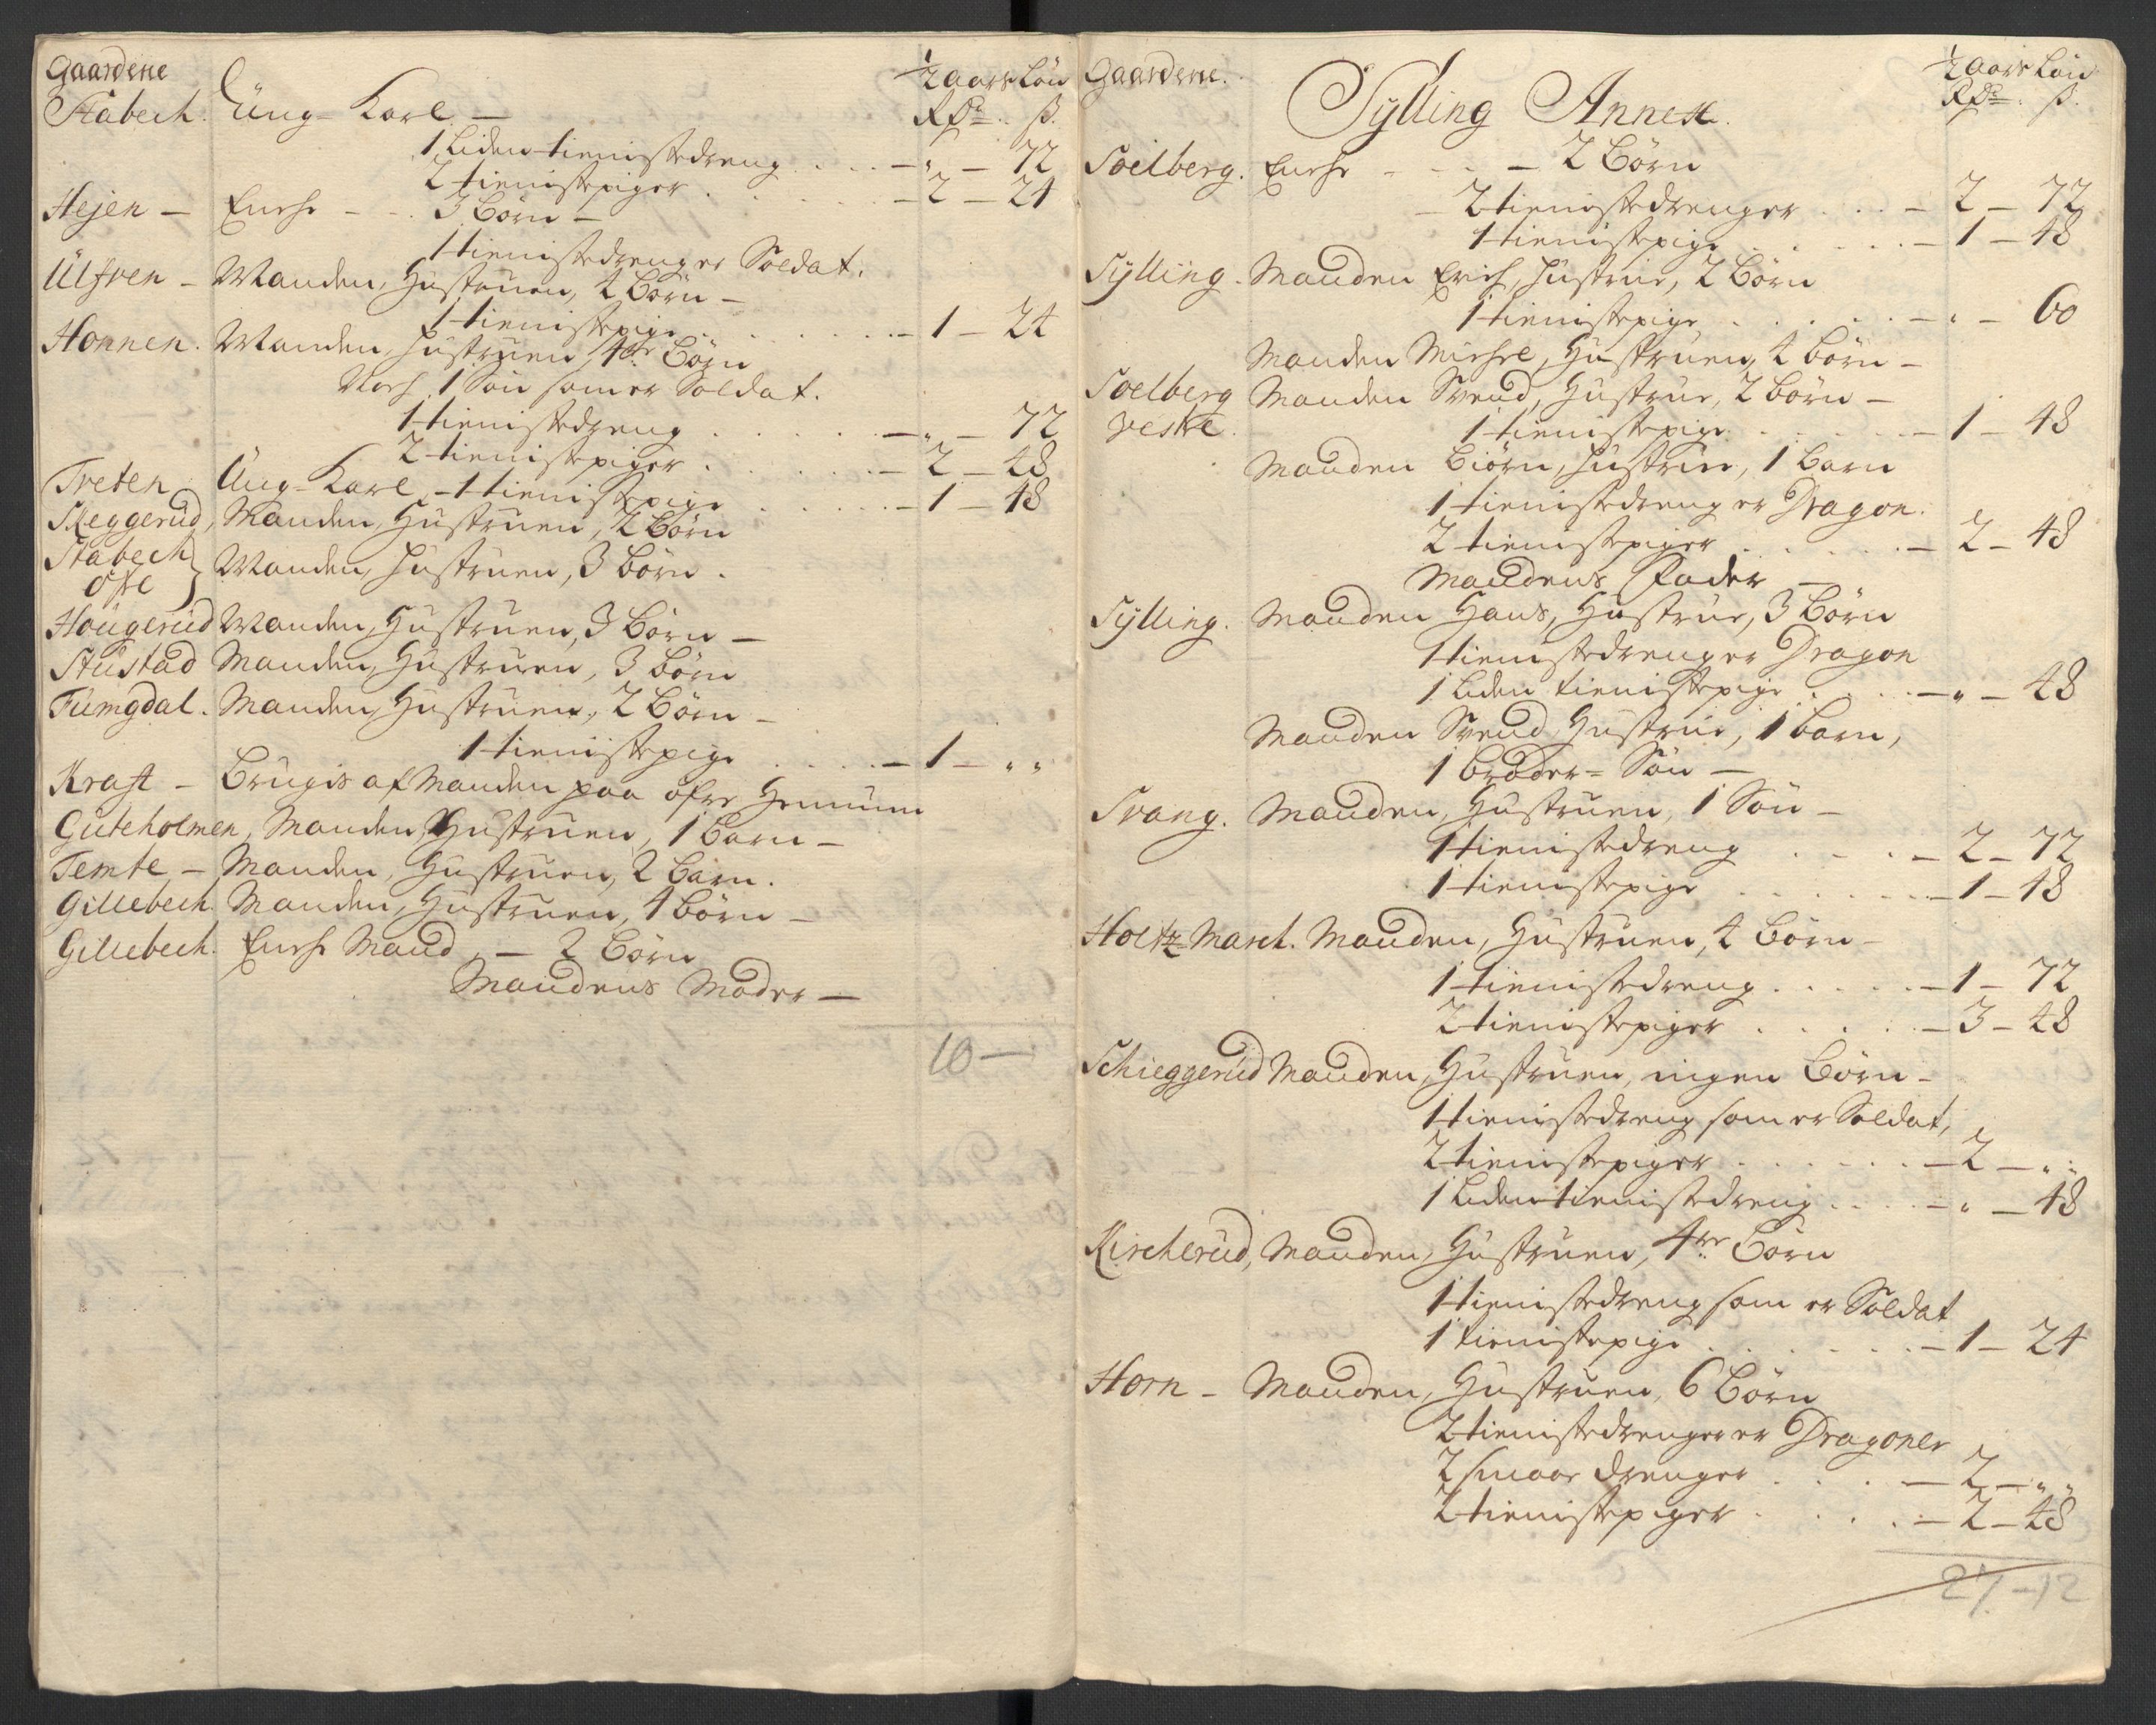 Gaardene
½ aars Løn
Stabech. Ung Karl —
Rdr. ß.
1 liden tieniste dreng . . . — „ — 72
2 tienistepiger . . . — 2 — 24
Hejen — Encke — 3 Børn —
1 tienistedreng er Soldat.
Ulfven — Manden, Hustruen, 2 Børn —
1 tienistepige . . . — 1 — 24
Honnen. Manden, Hustruen, 4re Børn
Noch 1 Søn som er Soldat.
1 tienistedreng . . . — „ — 72
2 tienistepiger . . . — 2 — 48
Treten Ung Karl, — 1 tienistepige . . . — 1 — 48
Skeggerud, Manden, Hustruen, 2 Børn
Stabech øfre } Manden, Hustruen, 3 børn.
Hougerud Manden, Hustruen, 3 Børn —
Stustad Manden, Hustruen, 3 børn
Tumgdal. Manden, Hustruen, 2 Børn —
1 tienistepige . . . — 1 — „ „
Kraft — Brugis af Manden paa øfre
Guteholmen, Manden, Hustruen, 1 barn —
Temte — Manden, Hustruen, 2 barn.
Gillebech. Manden, Hustruen, 4 børn —
Gillebech. Encke Mand, — 2 Børn
Mandens Moder —
10 —
Gaardene.
½ aars Løn
Rdr. ß.
Sylling Annex.
Soelberg. Encke — 2 Børn
2 tienistedrenger . . . — 2 — 72
1 tienistepige . . . — 1 — 48
Sylling. Manden Erich, Hustrue, 2 Børn
1 tienistepige . . . — „ — 60
Manden Michel, Hustruen, 2 børn —
Soelberg Manden Svend, Hustrue, 2 børn —
vestre. 1 tienistepige . . . — 1 — 48
Manden Biørn, Hustrue, 1 barn
1 tienistedreng er Dragon.
2 tienistepiger . . . — 2 — 48
Mandens Fader —
Sylling. Manden Hans, Hustrue, 3 Børn
1 tienistedreng er Dragon
1 liden tienistepige . . . — „ — 48
Manden Svend, Hustrue, 1 barn,
1 broder = Søn —
Svang. Manden, Hustruen, 1 Søn —
1 tienistedreng . . . — 2 — 72
1 tienistepige . . . — 1 — 48
Holtz March. Manden, Hustruen, 2 børn —
1 tienistedreng . . . — 1 — 72
2 tienistepiger . . . — 3 — 48
Schieggerud Manden, Hustruen, ingen Børn —
1 tienistedreng som er Soldat,
2 tienistepiger . . . — 2 — „ „
1 liden tienistedreng . . . — „ — 48
Kircherud, Manden, Hustruen, 4re Børn
1 tienistedreng som er Soldat
1 tienistepige . . . — 1 — 24
Horn — Manden, Hustruen, 6 Børn
2 tienistedrenger er Dragoner
2 smaae drenger . . . — 2 — „ „
2 tienistepiger . . . — 2 — 48
27 — 12